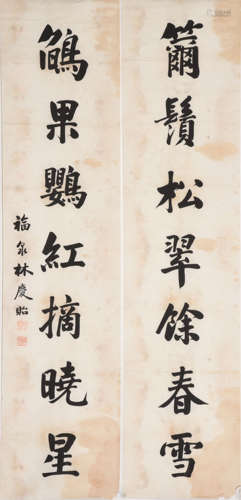 簷鬚松翠餘春雪
鵮果鸚紅摘曉星
福泉林慶貽